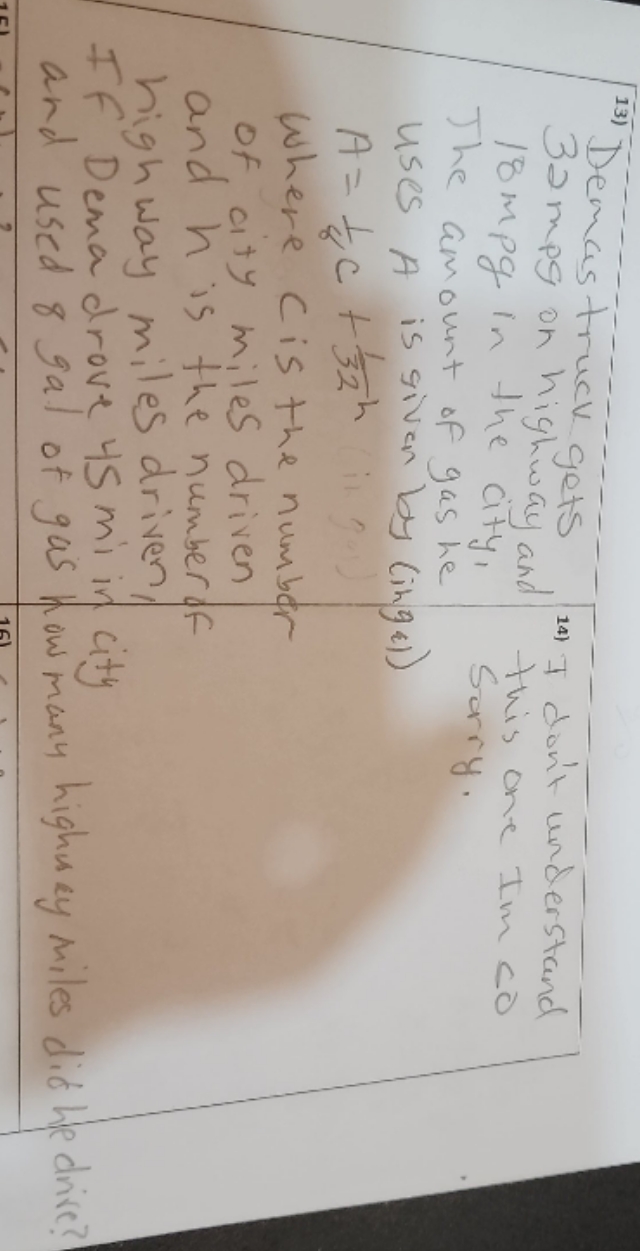 13) Demas truck gets
32mpg on highway and
18mpg in the city,
The amount of gas he
uses A is given by (in gal)
A = 1/8 c + 1/32 h (in gal)
where c is the number
of city miles driven
and h is the number of
highway miles driven,
If Dema drove 45 mi in city
and used 8 gal of gas how many highway miles did he drive?
14) I don't understand
this one Im so
sorry.
15)
16)